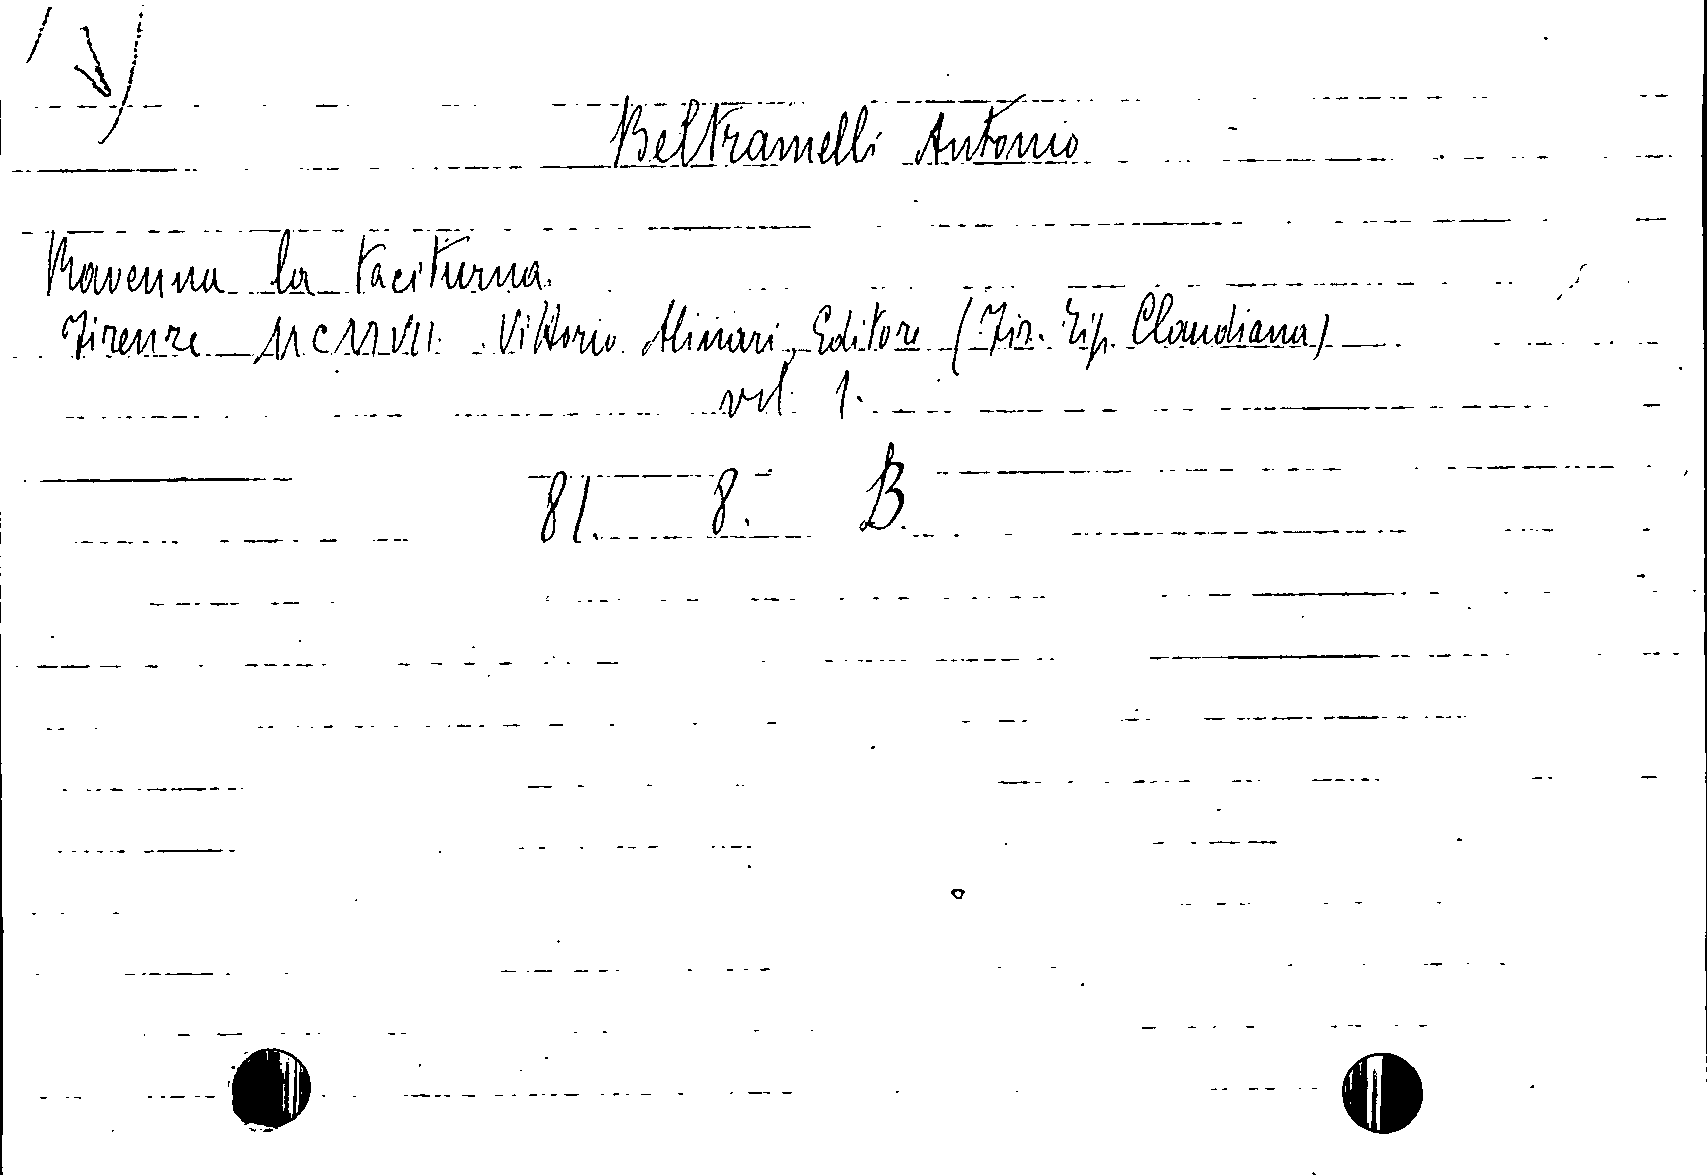 Beltramelli Antonio
Ravenna la taciturna.
Firenze MCMVII. Vittorio Alinari, Editore (Fir. Tip. Claudiana)
vol. 1.
81. 8. B.